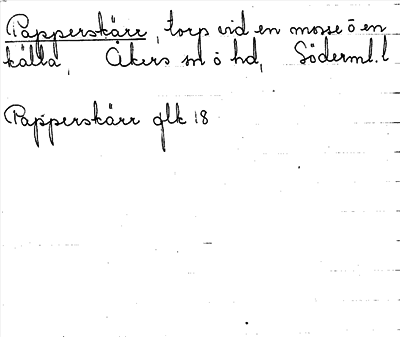 Papperskärr, torp vid en mosse o en
källa, Åkers sn o hd, Söderml. l
Papperskärr glk 18